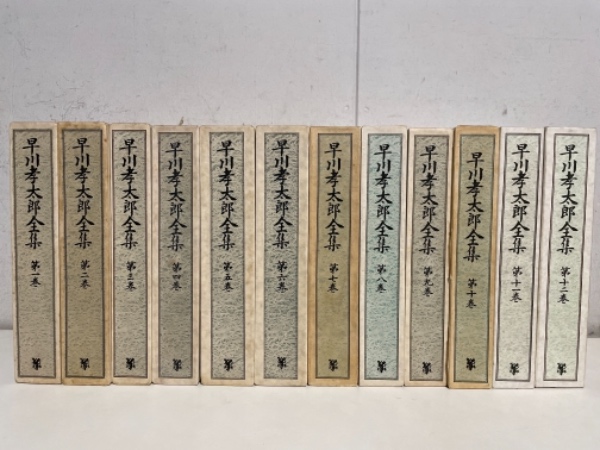 早川孝太郎全集 第一巻
早川孝太郎全集 第二巻
早川孝太郎全集 第三巻
早川孝太郎全集 第四巻
早川孝太郎全集 第五巻
早川孝太郎全集 第六巻
早川孝太郎全集 第七巻
早川孝太郎全集 第八巻
早川孝太郎全集 第九巻
早川孝太郎全集 第十巻
早川孝太郎全集 第十一巻
早川孝太郎全集 第十二巻